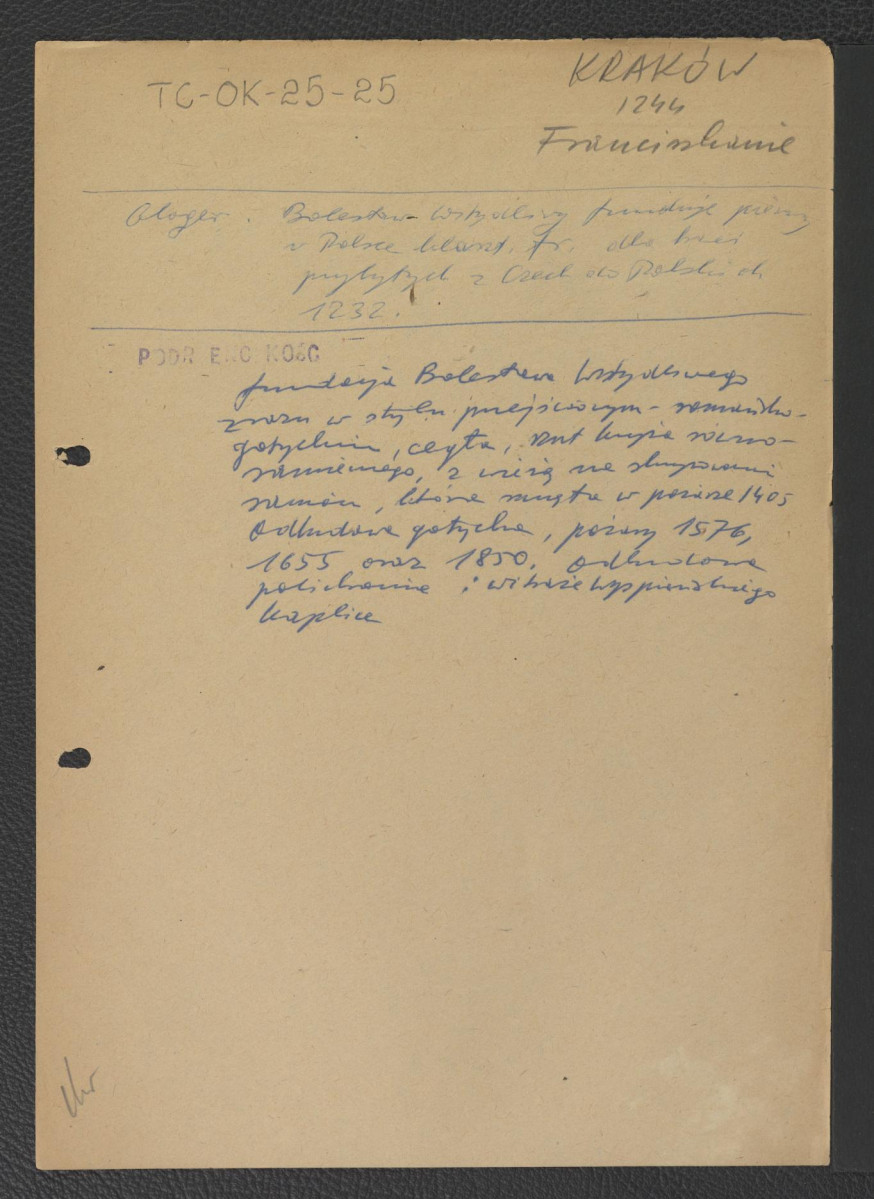 TC-OK-25-25
KRAKÓW
1244
Franciszkanie
Gloger. Bolesław Wstydliwy funduje pierwszy
w Polsce klaszt. fr. dla braci
przybyłych z Czech do Polski ok
1232.
PODR ENC KOŚC
fundacja Bolesława Wstydliwego
zrazu w stylu przejściowym - romańsko-
gotyckim, cegła, rzut krzyża równo-
ramiennego, z wieżą na skrzyżowaniu
ramion, która runęła w pożarze 1405
Odbudowa gotycka, pożary 1576,
1655 oraz 1850. Odbudowa
polichromie i witraże Wyspiańskiego
kaplice